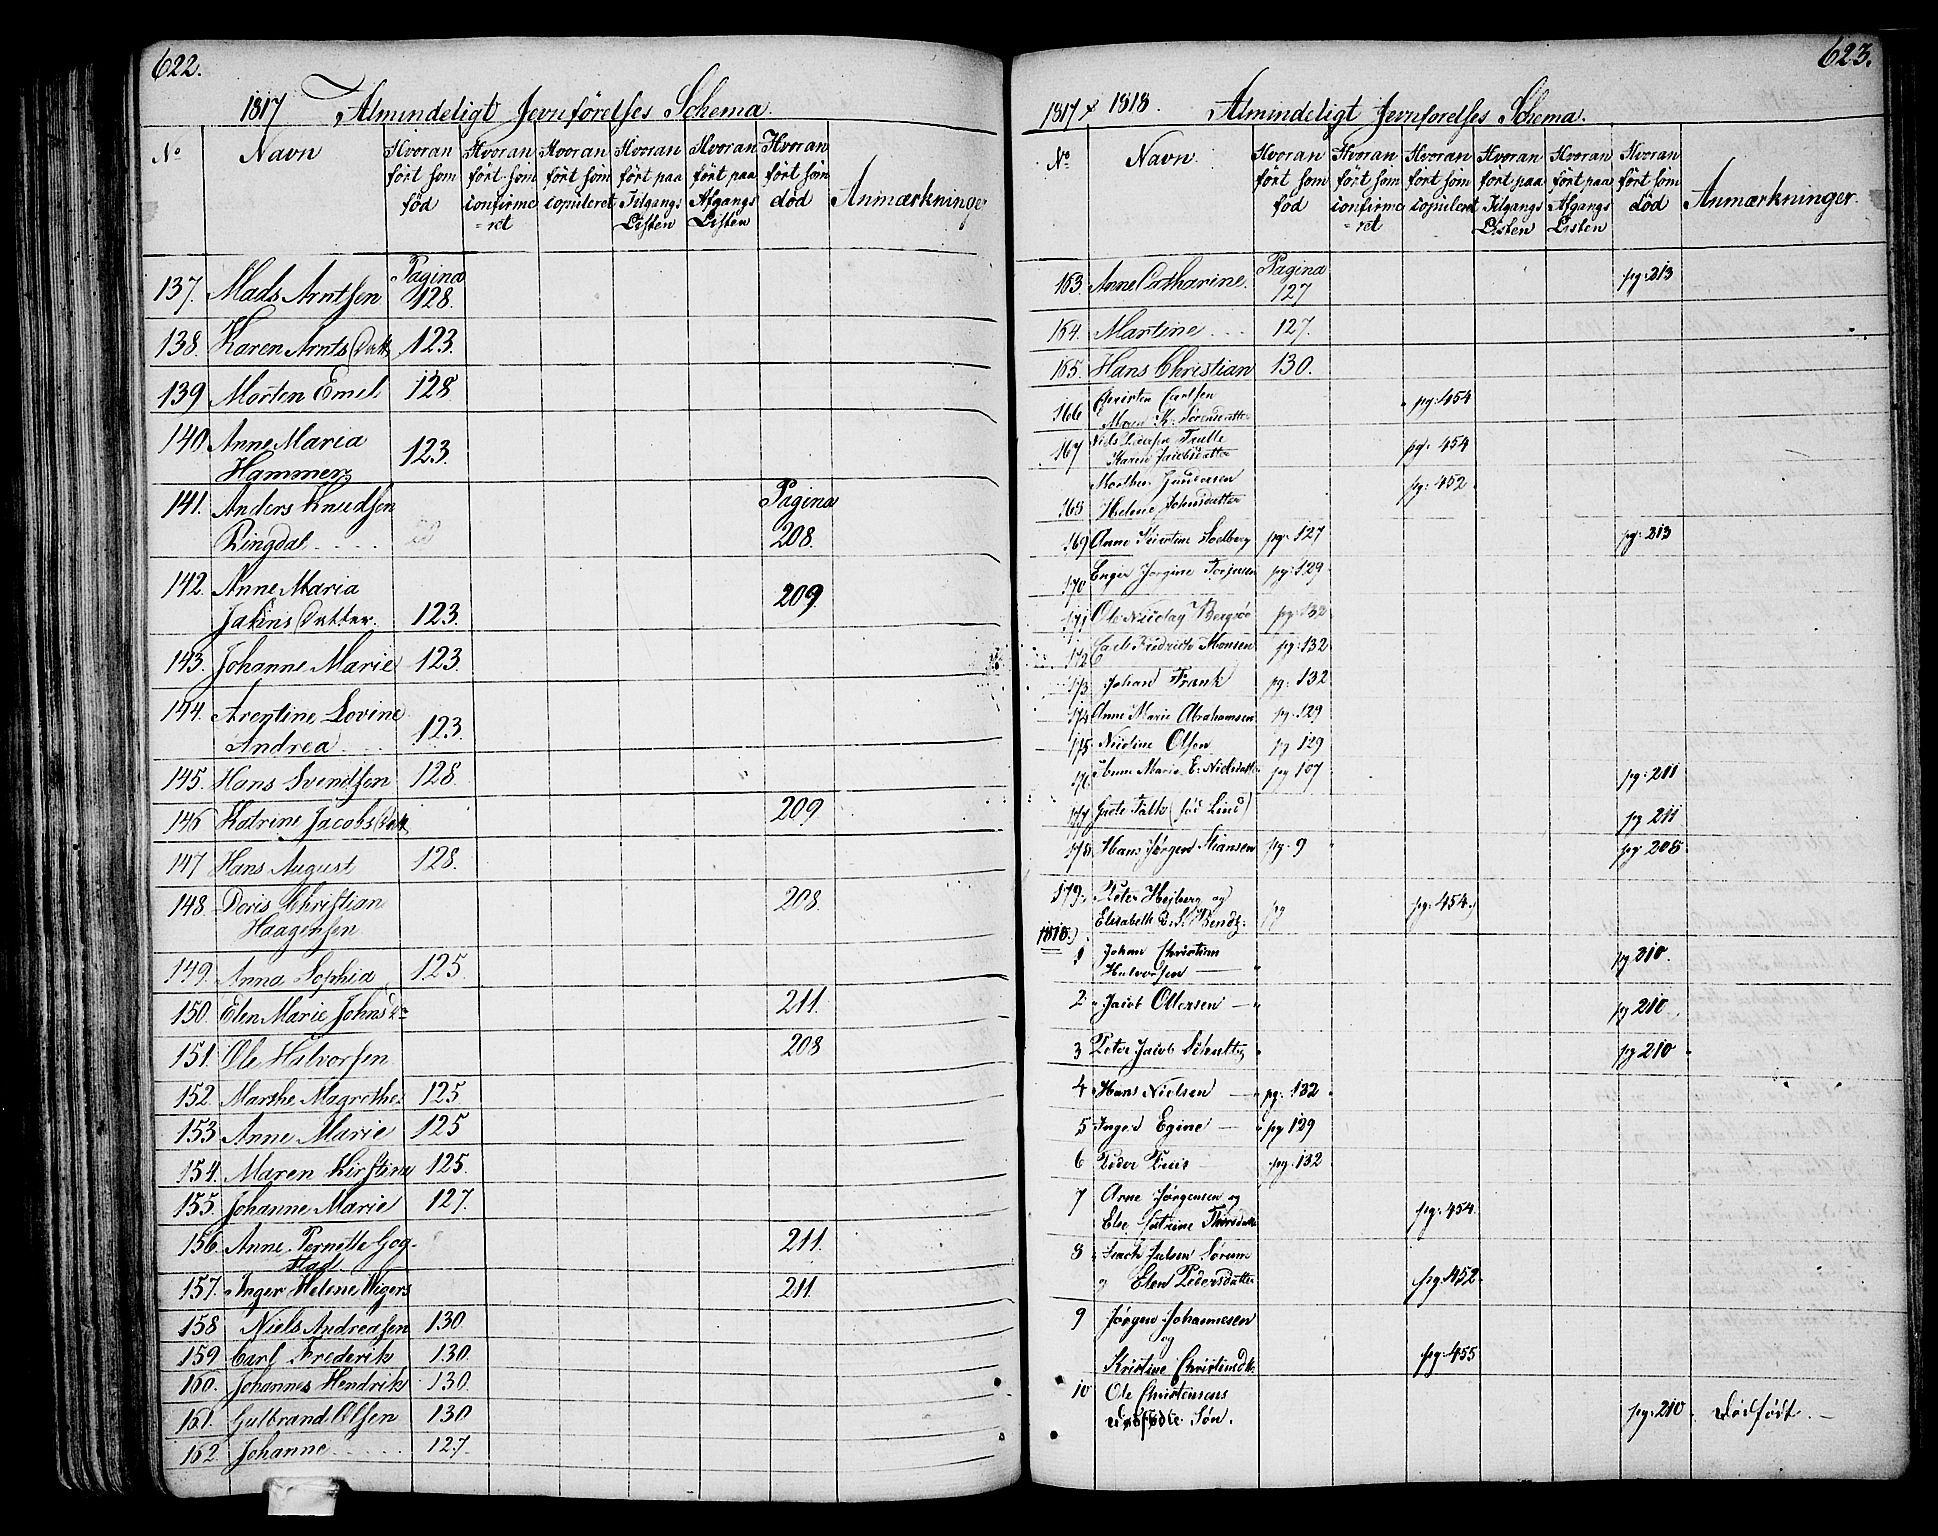 622.
1817 Almindeligt Jevnførelses Schema.
No Navn Hvoran ført som fød Hvoran ført som confirme=ret Hvoran ført som copuleret Hvoran ført paa Tilgangs Listen Hvoran ført paa Afgangs Listen Hvoran ført som død Anmærkninger
137. Mads Arntsen Pagina 128.
138. Karen Arnts Datt. 123.
139 Morten Emel 128
140 Anne Maria
Hammer 123.
141. Anders Knudsen Pagina
Ringdal 208.
142. Anne Maria
Jakins Datter. 123. 209.
143. Johanne Marie 123.
144. Arentine Lovine
Andrea 123.
145. Hans Svendsen 128.
146 Katrine Jacobs Datt 209
147 Hans August 128.
148. Doris Christian 208.
Haagensen
149. Anna Sophia 125.
150. Elen Marie Johns Dr 211.
151. Ole Halvorsen 208
152. Marthe Magrethe. 125
153. Anne Marie 125
154. Maren Kirstine 125.
155. Johanne Marie 127.
156. Anne Pernelle Gog- 211.
stad
157. Inger Helene Wigers 211.
158 Niels Andreasen 130.
159 Carl Frederik 130.
160. Johannes Hendrik 130
161. Gulbrand Olsen 130
162. Johanne 127.
623.
1817 & 1818. Almindeligt Jevnførelses Schema.
No Navn. Hvoran ført som fød Hvoran ført som confirme=ret Hvoran ført som copuleret Hvoran ført paa Tilgangs Listen Hvoran ført paa Afgangs Listen Hvoran ført som død Anmærkninger.
163. Anne Catharine. Pagina 127 pg: 213
164. Martine 127.
165. Hans Christian 130.
166 Christen Carlsen pg: 454
Maren K. Sørensdatter
167 Niels Larsen Trulle pg: 454
Karen Jacobsdatter
168 Gundersen pg: 452
Helene Johnsdatter
169 Anne Kirstine Hodberg pg: 127 pg: 213
170 Enger Jørgine Torjusen pg: 129
171 Ole Nicolay Bergsøe pg: 132
172 Carl Fredrich Monsen pg: 132
173 Johan Frank pg: 132
174 Anne Marie Abrahamsen pg: 129
175 Nicoline Olsen pg 129
176 Anne Marie E. Nielsdatter pg 107 pg: 211
177 Falk (fød Lind) pg 211
178 Hans Jørgen Hansen pg: 9 pg 208
179. Peter Hejberg og pg pg: 454
Elisabeth
1818.)
1 Johan Christian pg 310.
Halvorsen
2 Jacob Ottersen pg 210
3 Peter Jacob Schultz pg 210
4 Hans Nielsen pg: 132
5 Inger Egine pg 129
6 Peder pg: 132
7 Arne Jørgensen og
Else Catrine Thorsdatter pg: 454
8 Isach Julsen Sørum
og Elen Pedersdatter pg 452
9 Jørgen Johannesen
og
Kristine Christiansdtr. pg: 455
10 Ole Christensens
dødfødte Søn. pg: 210 Dødfødt.